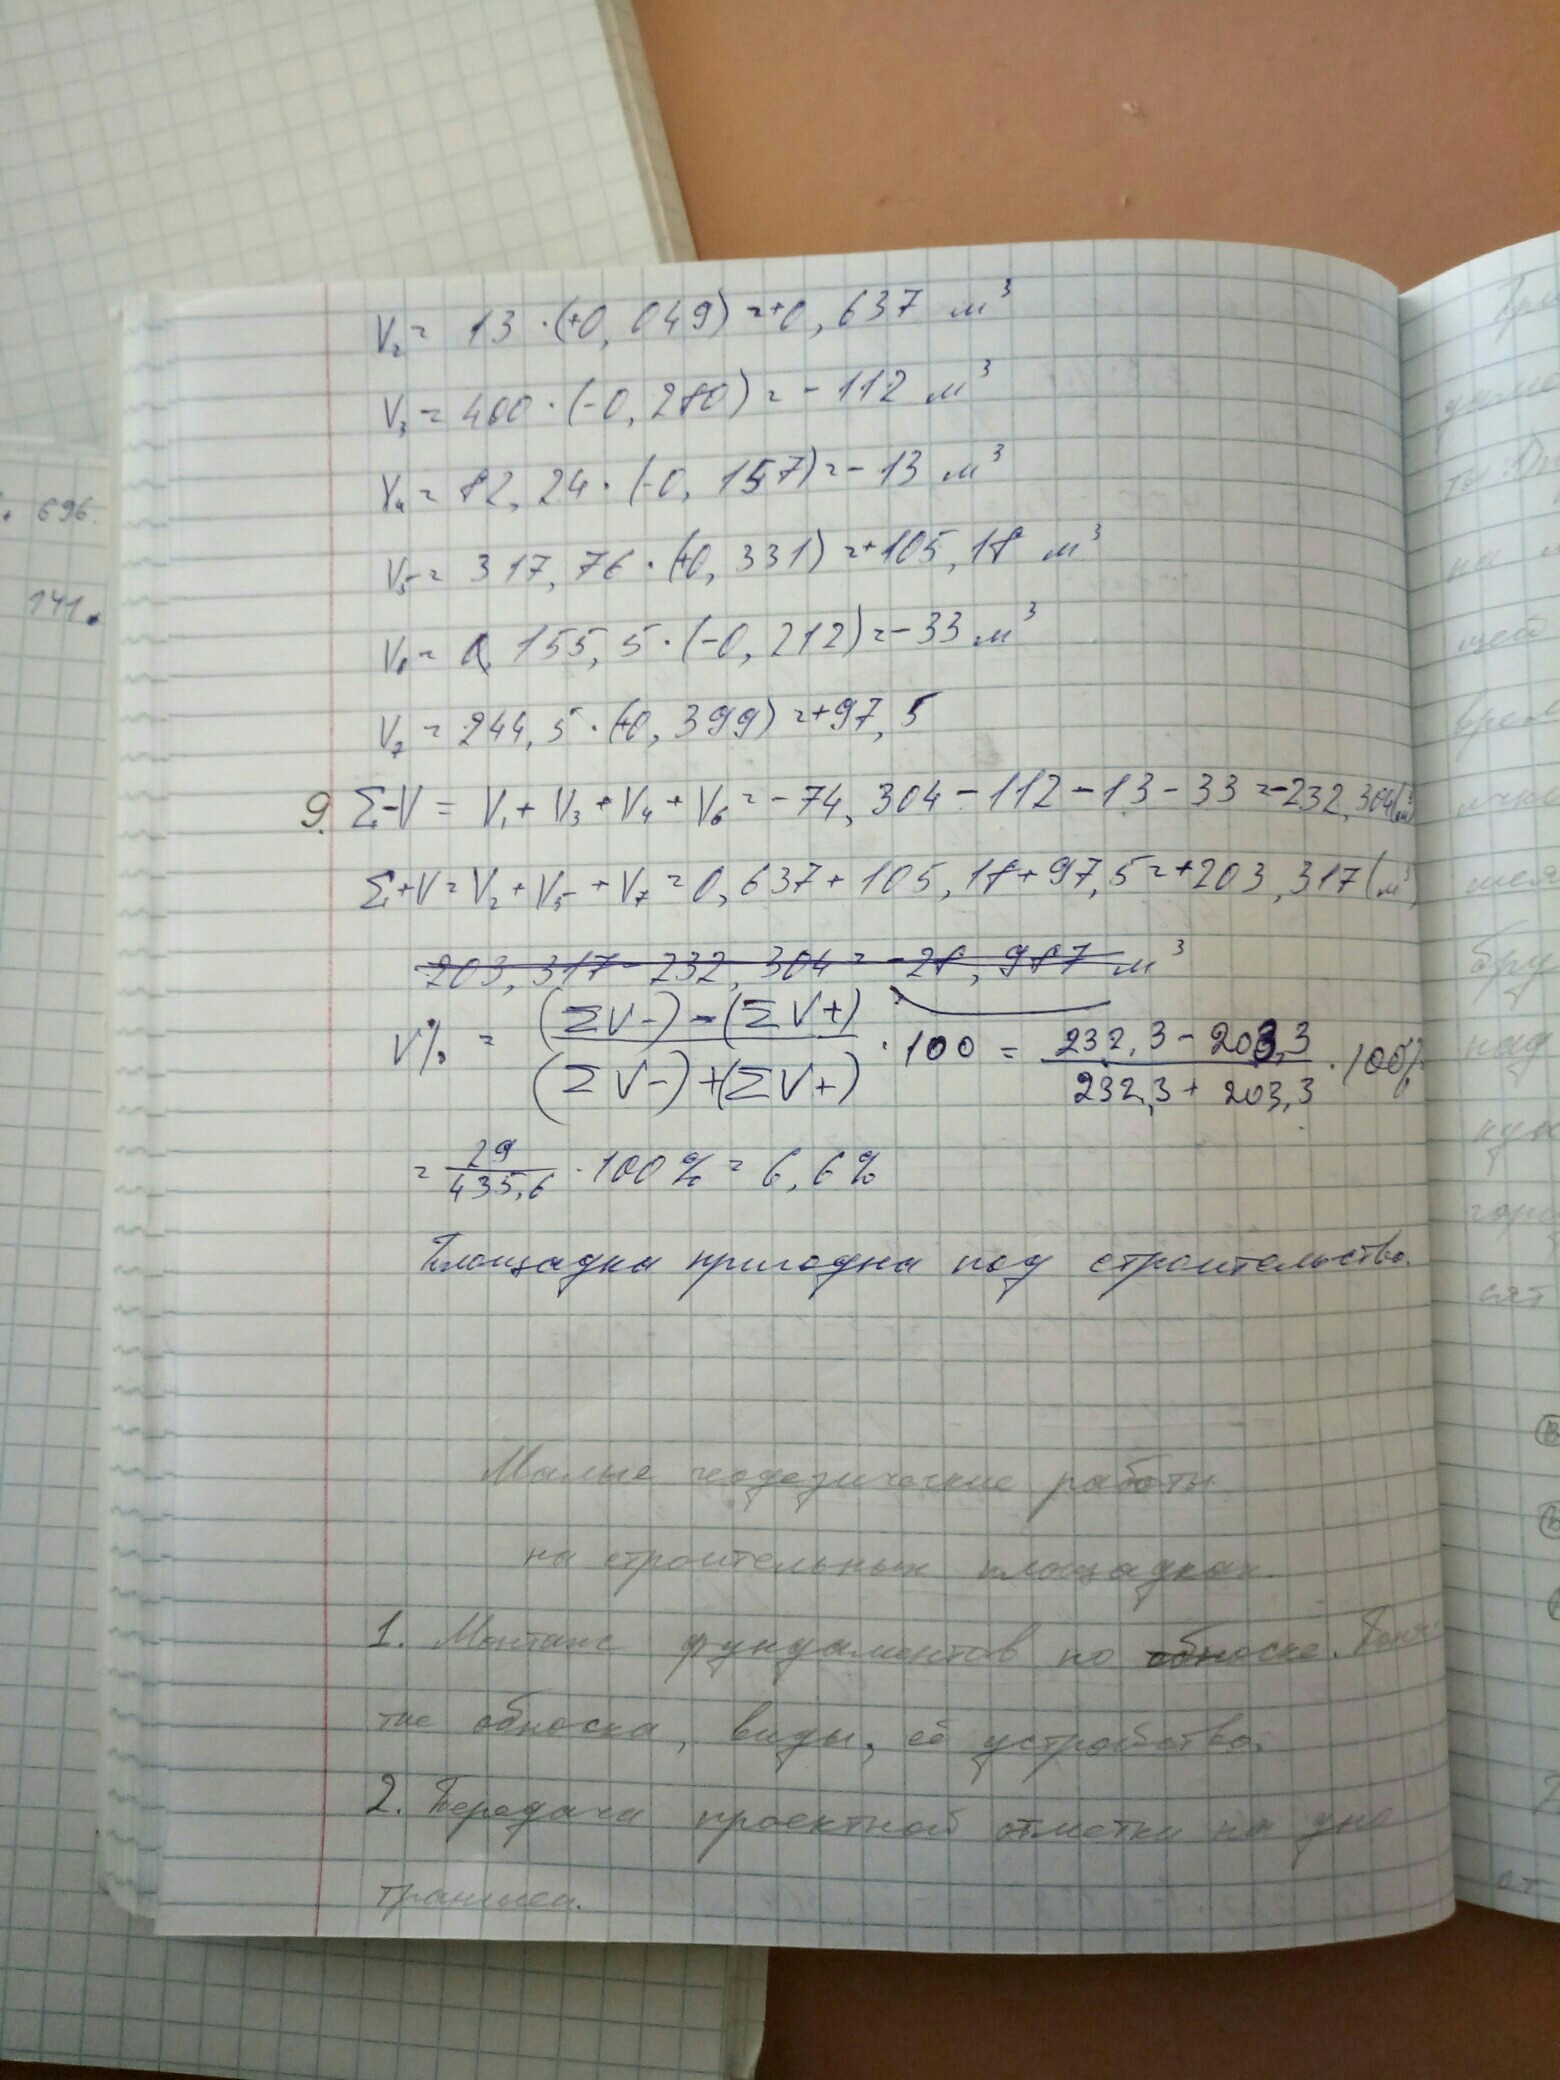 696.
141.
V₂ = 13 · (+0,049) = +0,637 м³
V₃ = 400 · (-0,280) = -112 м³
V₄ = 82,24 · (-0,157) = -13 м³
V₅ = 317,76 · (+0,331) = +105,18 м³
V₆ = 155,5 · (-0,212) = -33 м³
V₇ = 244,5 · (+0,399) = +97,5
9. Σ-V = V₁ + V₃ + V₄ + V₆ = -74,304 - 112 - 13 - 33 = -232,304 (м³)
Σ+V = V₂ + V₅ + V₇ = 0,637 + 105,18 + 97,5 = +203,317 (м³)
203,317 - 232,304 = -28,987 м³
V% = (ΣV-) - (ΣV+) / (ΣV-) + (ΣV+) · 100 = 232,3 - 203,3 / 232,3 + 203,3 · 100%
= 29 / 435,6 · 100% = 6,6%
Площадка пригодна под строительство.
Малые геодезические работы
на строительных площадках.
1. Монтаж фундаментов по обноске. Поня-
тие обноска, виды, её устройство.
2. Передача проектной отметки на дно
траншеи.